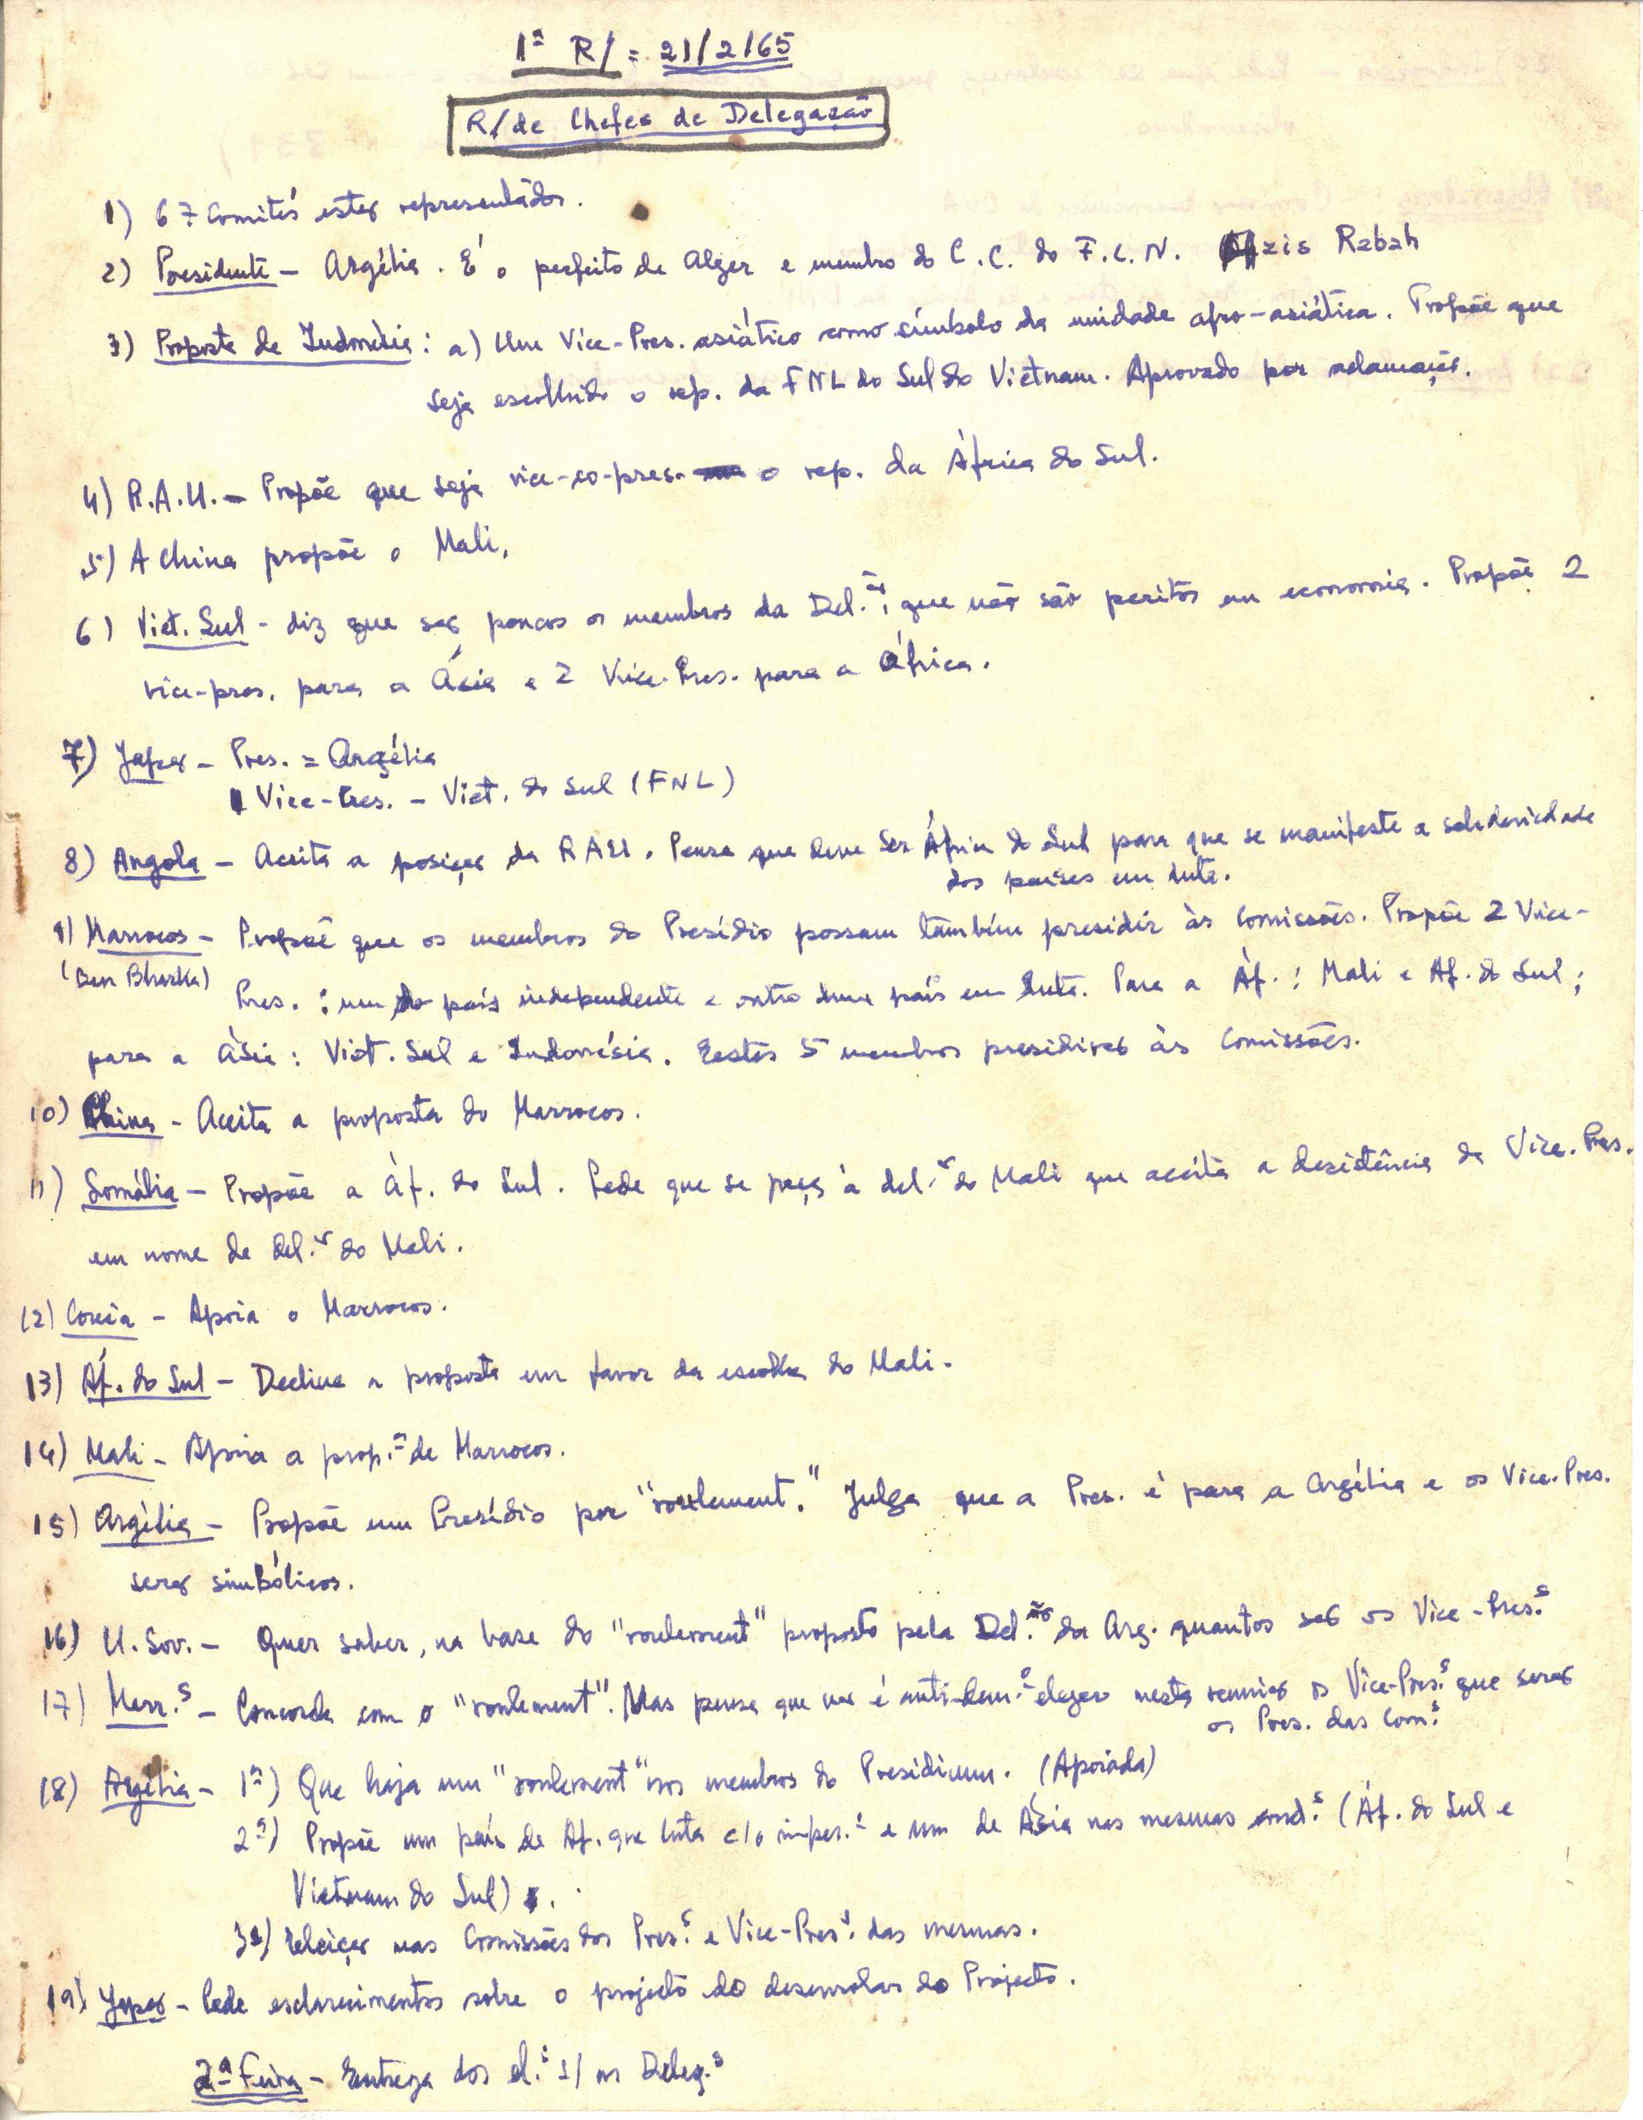 1ª R/ = 21/2/65
R/ de Chefes de Delegação
1) 67 Comités estão representados.
2) Presidente – Argélia. É o perfeito de Alger e membro do C.C. do F.L.N. Azis Rabah
3) Proposta da Indonésia: a) Um Vice-Pres. asiático como símbolo da unidade afro-asiática. Propõe que
seja escolhido o rep. da FNL do Sul do Vietnam. Aprovado por aclamação.
4) R.A.U. – Propõe que seja vice-co-pres. o rep. da África do Sul.
5) A China propõe o Mali.
6) Viet. Sul – diz que são poucos os membros da Del.ão, que não são peritos em economia. Propõe 2
vice-pres. para a Ásia e 2 Vice-Pres. para a África.
7) Japão – Pres. = Argélia
1 Vice-Pres. – Viet. do Sul (FNL)
8) Angola – Aceita a posição da RAU. Pensa que deve ser África do Sul para que se manifeste a solidariedade
dos países em luta.
9) Marrocos – Propõe que os membros do Presídio possam também presidir às Comissões. Propõe 2 Vice-
(Ben Bharka)
Pres.: um do país independente e outro dum país em luta. Para a Áf.: Mali e Af. do Sul;
para a Ásia: Viet. Sul e Indonésia. Estes 5 membros presidirão às Comissões.
10) China – Aceita a proposta do Marrocos.
11) Somália – Propõe a Áf. do Sul. Pede que se peça à del.ão do Mali que aceita a desistência de Vice-Pres.
em nome da del.ão do Mali.
12) Coreia – Apoia o Marrocos.
13) Áf. do Sul – Declina a proposta em favor da escolha do Mali.
14) Mali – Apoia a prop.ª de Marrocos.
15) Argélia – Propõe um Presídio por "roulement." Julga que a Pres. é para a Argélia e os Vice-Pres.
serão simbólicos.
16) U. Sov. – Quer saber, na base do "roulement" proposto pela Del.ão da Arg. quantos são os Vice-Pres.s
17) Marr.s – Concorda com o "roulement". Mas pensa que não é anti-dem.o eleger nesta reunião os Vice-Pres.s que serão
os Pres. das Com.s
18) Argélia – 1º) Que haja um "roulement" nos membros do Presidium. (Apoiada)
2º) Propõe um país de Af. que luta c/o imper.o e um de Ásia nas mesmas cond.s (Áf. do Sul e
Vietnam do Sul).
3º) Eleição nas Comissões dos Pres.s e Vice-Pres.s das mesmas.
19) Japão – Pede esclarecimentos sobre o projecto do desenrolar do Projecto.
2ª Feira – Entrega dos el.s s/ as Deleg.s